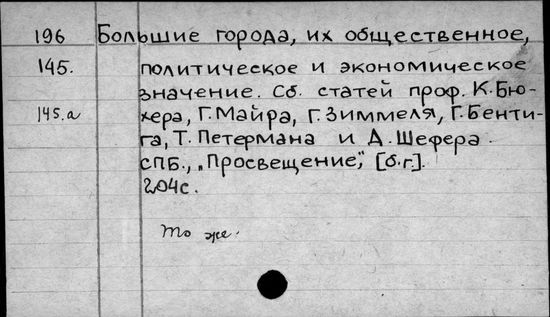 196 Большие города, их общественное,
145. политическое и экономическое
значение. Сб. статей проф. К. Бю-
145.а хера, Г. Майра, Г. Зиммеля, Г. Бенти-
га, Т. Петермана и Д. Шефера.
СПБ., „Просвещение", [б.г.].
204с.
То же.